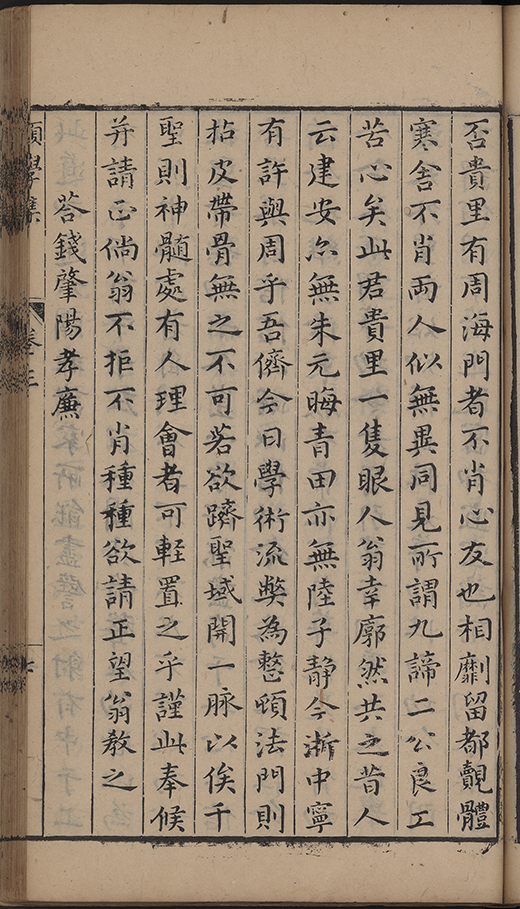 否貴里有周海門者不肖心友也相劘留都覿體
寒舍不肖両人似無異同見所謂九諦二公良工
苦心矣此君貴里一隻眼人翁幸廓然共之昔人
云建安亦無朱元晦青田亦無陸子静今浙中寧
有許與周乎吾儕今日學術流獘為憨頓法門則
拈皮帶骨無之不可若欲躋聖域開一脉以俟千
聖則神髓處有人理會者可輕置之乎謹此奉候
并請正倘翁不拒不肖種種欲請正望翁教之
荅錢肇陽孝廉
願學集
卷三
七